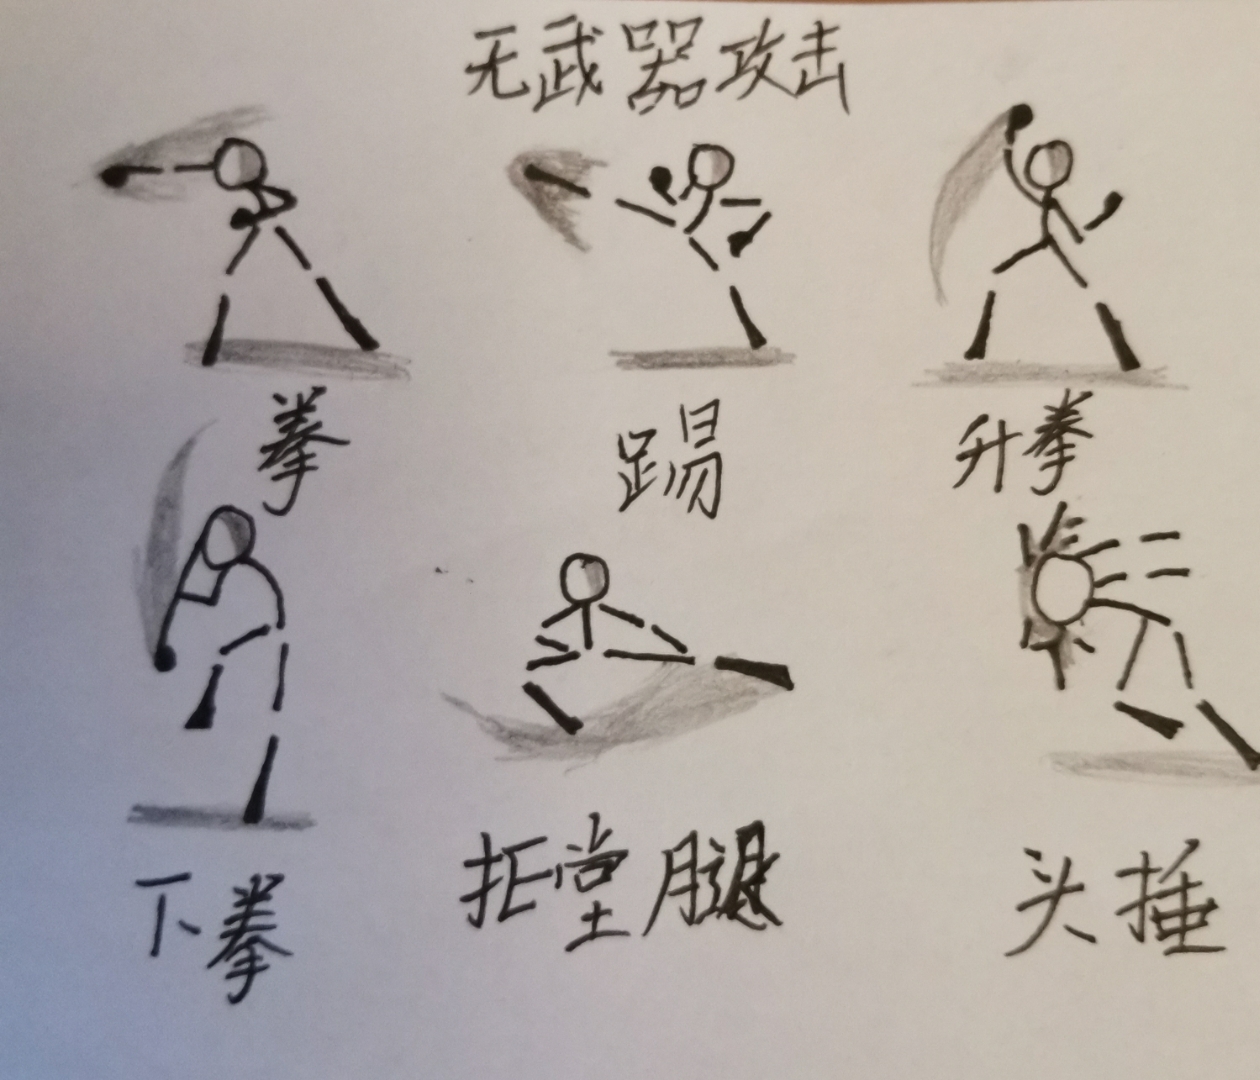 无武器攻击
拳
踢
升拳
下拳
拒堂腿
头捶